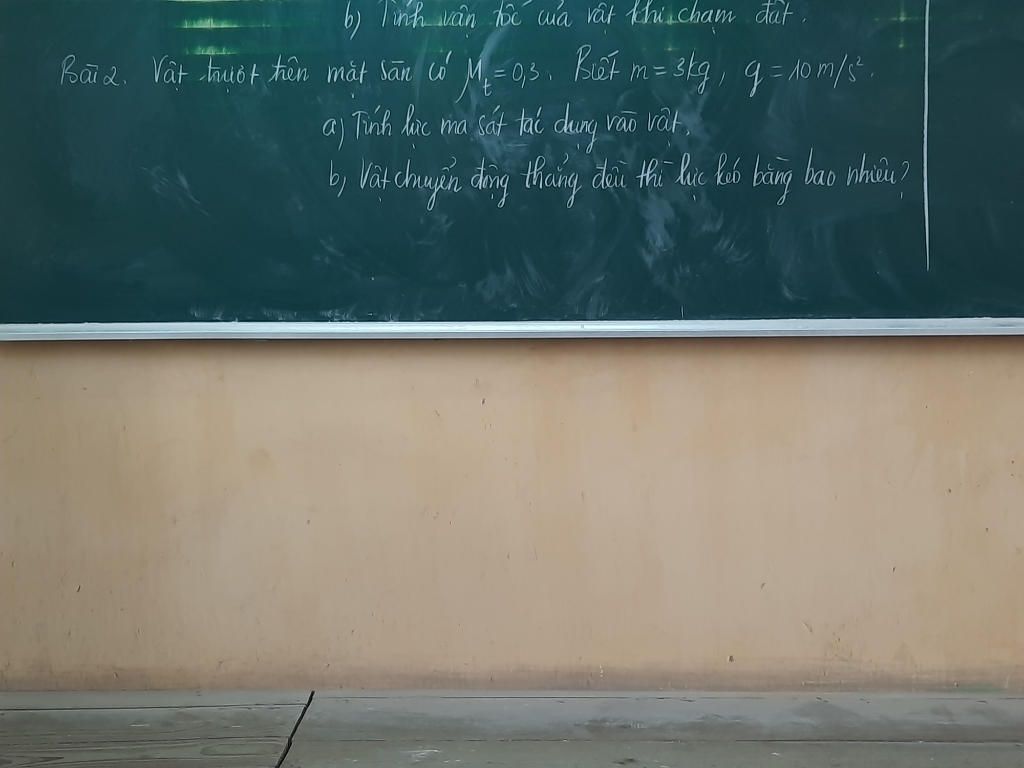 b) Tính vận tốc của vật khi chạm đất.
Bài 2. Vật trượt trên mặt sàn có μt = 0,3. Biết m = 3kg, g = 10 m/s².
a) Tính lực ma sát tác dụng vào vật.
b) Vật chuyển động thẳng đều thì lực kéo bằng bao nhiêu?